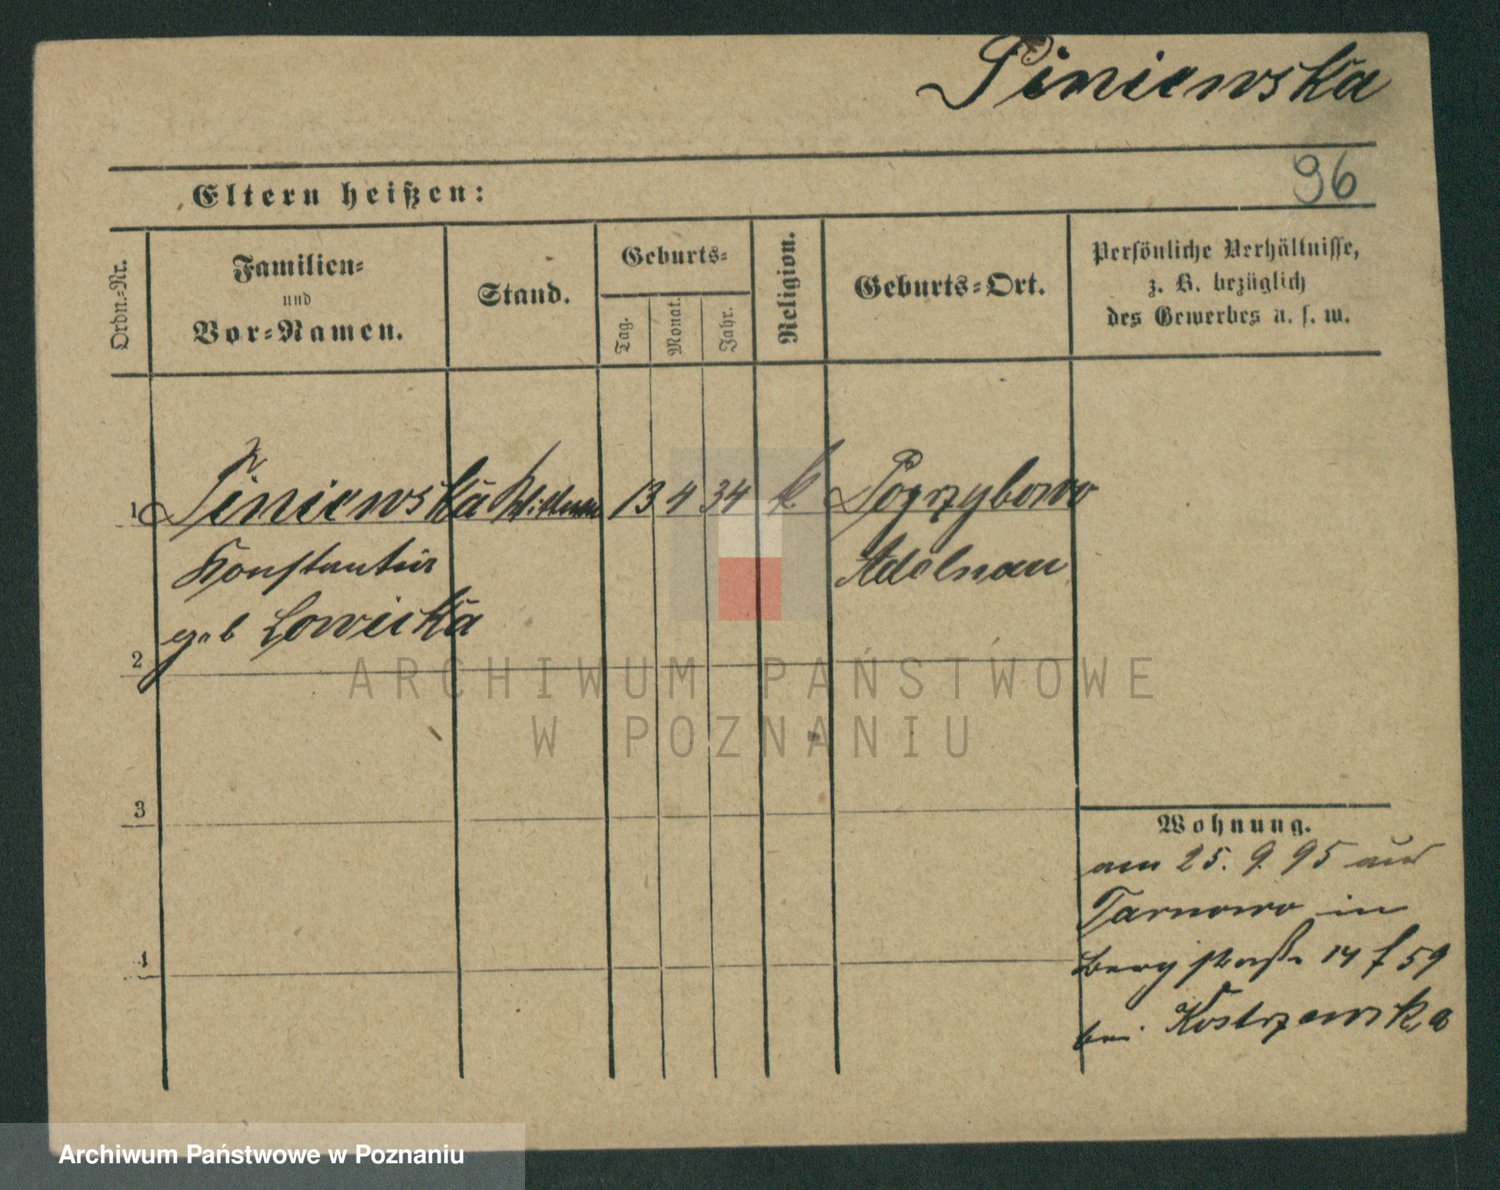 Piniewska
96
Eltern heißen:
Ordn.-Nr.
Familien-
und
Vor-Namen.
Stand.
Geburts-
Tag.
Monat.
Jahr.
Religion.
Geburts-Ort.
Persönliche Verhältnisse,
z. B. bezüglich
des Gewerbes u. s. w.
1 Piniewska 13 4 34 k Pogrzybowo
Konstantia Adelnau
geb Lowicka
2
3
4
Wohnung.
am 25. 9. 95 aus
Tarnowo in
Bergstraße 14 f 59
bei Kostrzewska
ARCHIWUM PAŃSTWOWE
W POZNANIU
Archiwum Państwowe w Poznaniu